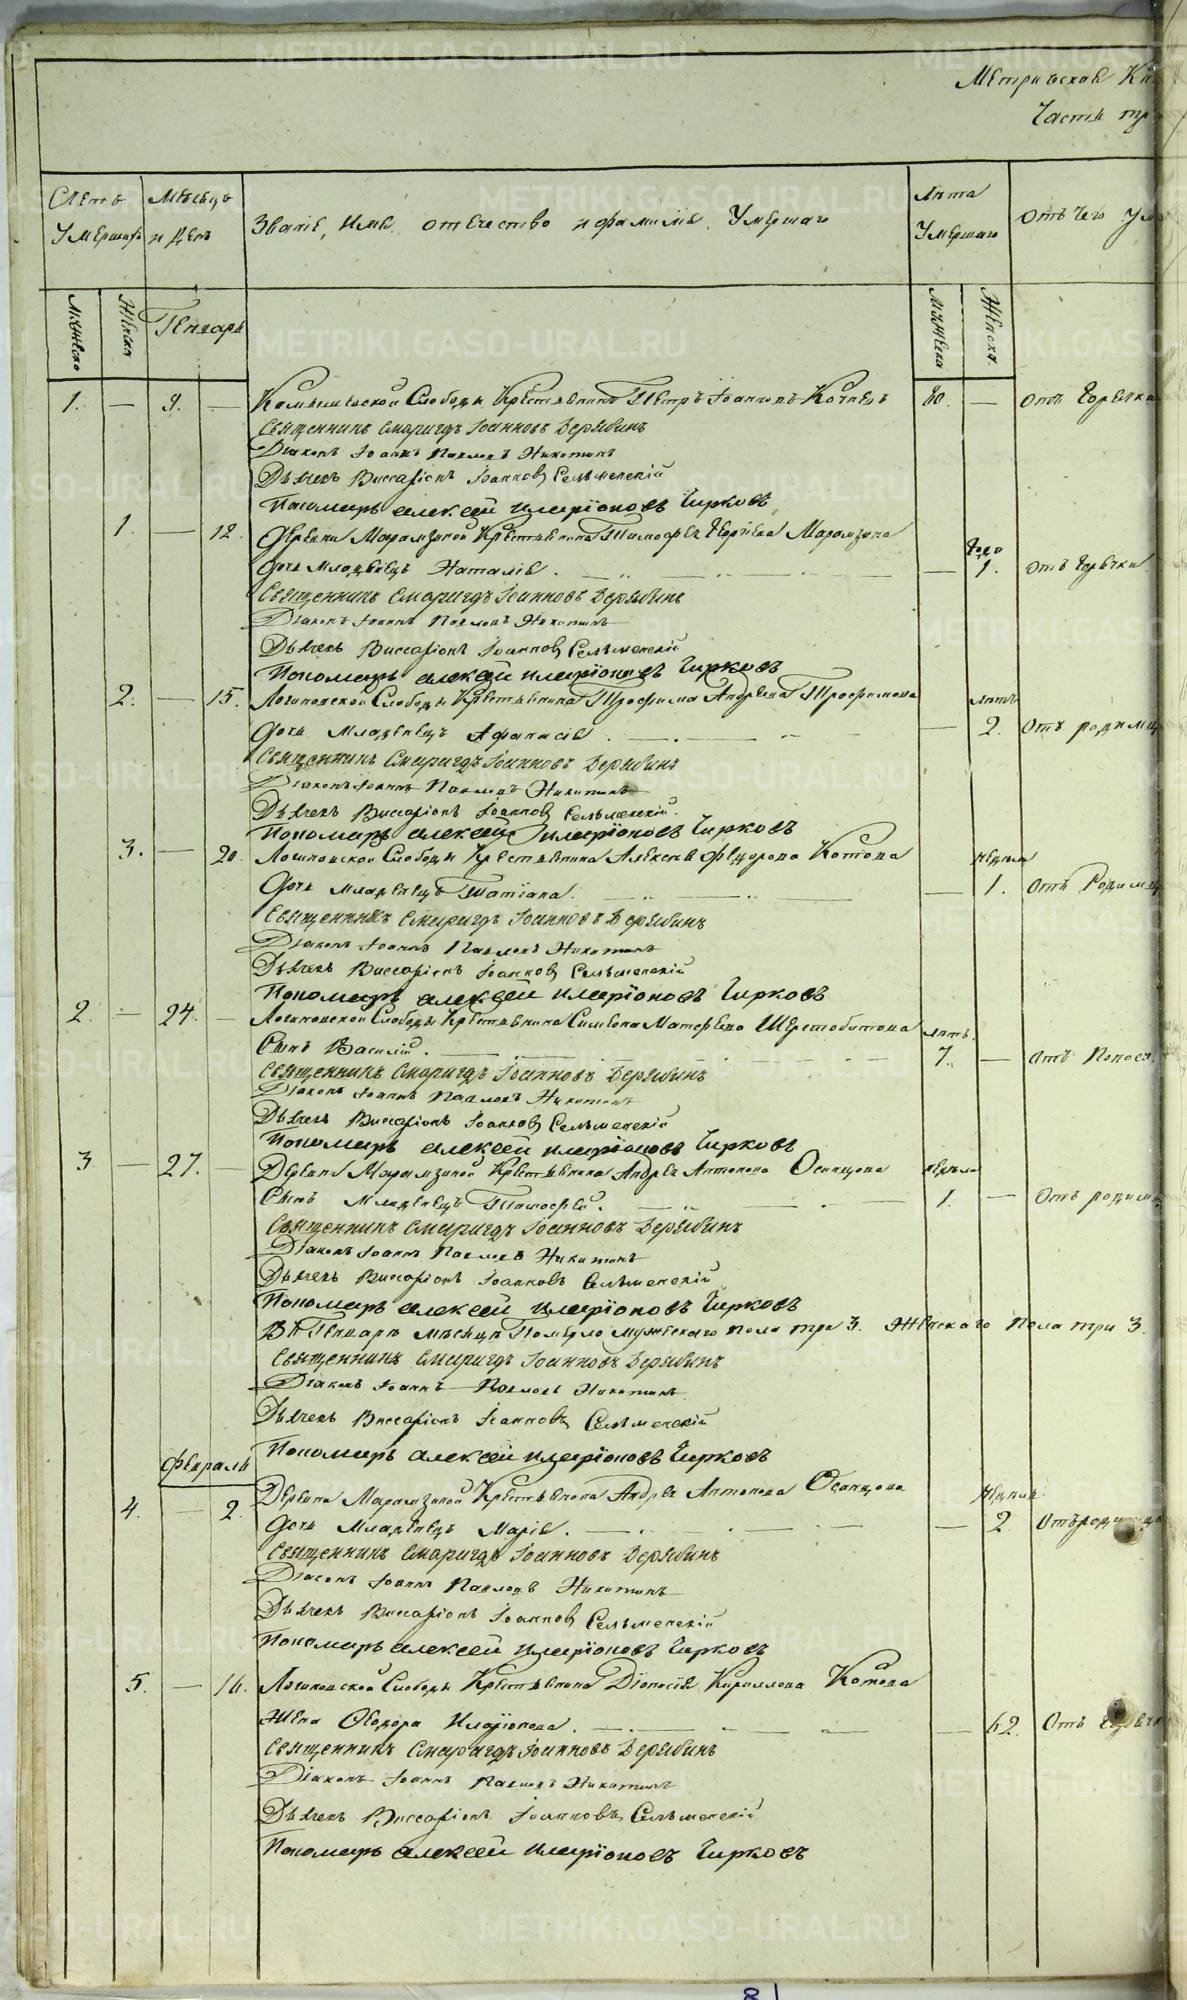 Метрической Кни
Часть тре
Счетъ Умершихъ
Мѣсяцъ и День
Званіе, Имя, отечество и фамилія Умершаго
Лѣта Умершаго
Отъ чего Уме
Мужеска
Женска
Генварь
Мужеска
Женска
1. — 9. — Крестьянинъ Петръ Іоанновъ 80. — Отъ Горячки
Священникъ Смарагдъ Іоанновъ Дерябинъ
Діаконъ Іоаннъ Павловъ Никитинъ
Дьячекъ Виссаріонъ Іоанновъ Сельменскій
Пономарь Алексей Иларіоновъ Чирковъ
1. — 12. Деревни Марамзиной Крестьянина Тимофея Марамзина
Дочь Младенецъ Наталія. — Года 1. Отъ Горячки
Священникъ Смарагдъ Іоанновъ Дерябинъ
Діаконъ Іоаннъ Павловъ Никитинъ
Дьячекъ Виссаріонъ Іоанновъ Сельменскій
Пономарь Алексей Иларіоновъ Чирковъ
2. — 15. Логиновской Слободы Крестьянина Трофима Андреева Трофимова
Дочь Младенецъ Афанасія. — лѣтъ 2. Отъ родимц
Священникъ Смарагдъ Іоанновъ Дерябинъ
Діаконъ Іоаннъ Павловъ Никитинъ
Дьячекъ Виссаріонъ Іоанновъ Сельменскій
Пономарь Алексей Иларіоновъ Чирковъ
3. — 20. Логиновской Слободы Крестьянина Алексея Федорова Котова
Дочь Младенецъ Татіана. — недѣля 1. Отъ Родимц
Священникъ Смарагдъ Іоанновъ Дерябинъ
Діаконъ Іоаннъ Павловъ Никитинъ
Дьячекъ Виссаріонъ Іоанновъ Сельменскій
Пономарь Алексей Иларіоновъ Чирковъ
2. — 24. — Логиновской Слободы Крестьянина Симеона Матфеева Шерстобитова лѣтъ
Сынъ Василій. 7. — Отъ Поноса
Священникъ Смарагдъ Іоанновъ Дерябинъ
Діаконъ Іоаннъ Павловъ Никитинъ
Дьячекъ Виссаріонъ Іоанновъ Сельменскій
Пономарь Алексей Иларіоновъ Чирковъ
3 — 27. — Деревни Марамзиной Крестьянина Андрея Антонова Осинцова недѣля
Сынъ Младенецъ Тимофей. 1. — Отъ родим
Священникъ Смарагдъ Іоанновъ Дерябинъ
Діаконъ Іоаннъ Павловъ Никитинъ
Дьячекъ Виссаріонъ Іоанновъ Сельменскій
Пономарь Алексей Иларіоновъ Чирковъ
Въ Генварѣ мѣсяцѣ Померло мужескаго пола три 3. Женскаго Пола три 3.
Священникъ Смарагдъ Іоанновъ Дерябинъ
Діаконъ Іоаннъ Павловъ Никитинъ
Дьячекъ Виссаріонъ Іоанновъ Сельменскій
Пономарь Алексей Иларіоновъ Чирковъ
Февраль
4. — 2. Деревни Марамзиной Крестьянина Андрея Антонова Осинцова
Дочь Младенецъ Марія. — недѣли 2. Отъ роди
Священникъ Смарагдъ Іоанновъ Дерябинъ
Діаконъ Іоаннъ Павловъ Никитинъ
Дьячекъ Виссаріонъ Іоанновъ Сельменскій
Пономарь Алексей Иларіоновъ Чирковъ
5. — 16. Логиновской Слободы Крестьянина Діонисія Кирилова Котова
Жена Феодора Иларіонова. — 62. Отъ Горячк
Священникъ Смарагдъ Іоанновъ Дерябинъ
Діаконъ Іоаннъ Павловъ Никитинъ
Дьячекъ Виссаріонъ Іоанновъ Сельменскій
Пономарь Алексей Иларіоновъ Чирковъ
METRIKI.GASO-URAL.RU